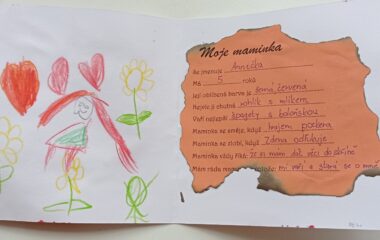 Moje maminka
Se jmenuje Annička
Má 5 roků
Její oblíbená barva je černá, červená
Nejvíc jí chutná rohlík s mlíkem.
Vaří nejlepší špagety s boloňskou
Maminka se směje, když hrajem
Maminka se zlobí, když Zdena odmlouvá
Maminka vždy říká: že si mám dát věci do skříně
Mám ráda maminku, protože: mi vaří a stará se o mně